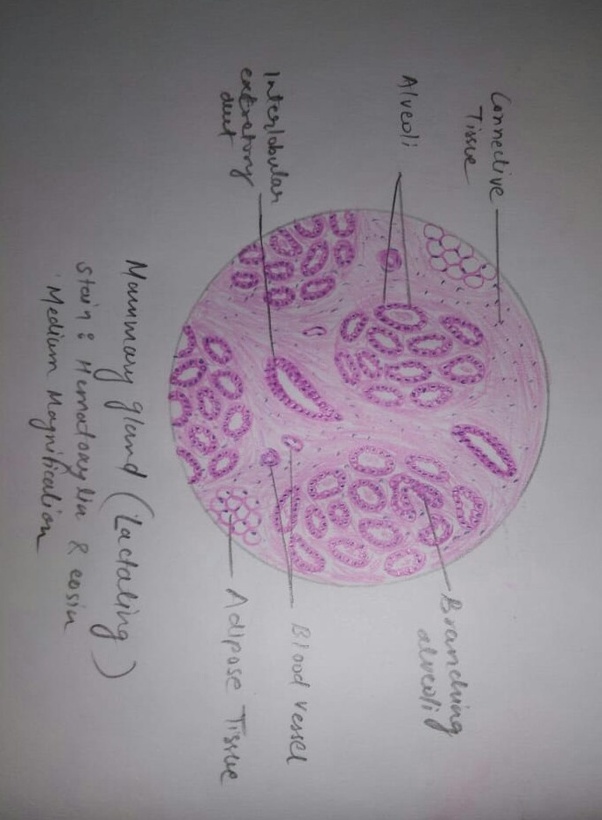 Connective
Tissue
Alveoli
Interlobular
excretory
duct
Branching
alveoli
Blood vessel
Adipose Tissue
Mammary gland (Lactating)
Stain : Hematoxylin & eosin
Medium Magnification